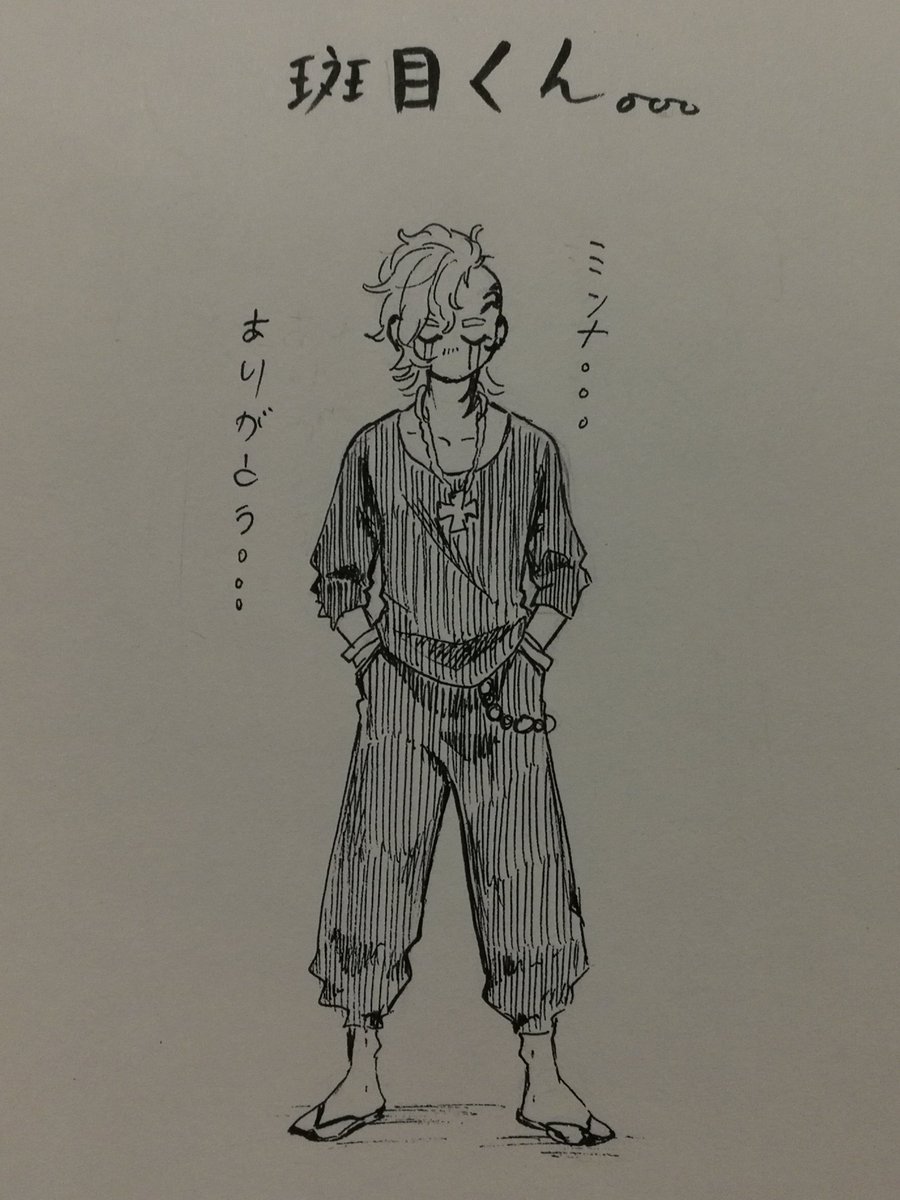 斑目くん。。。。
ミンナ。。。
ありがとう。。。